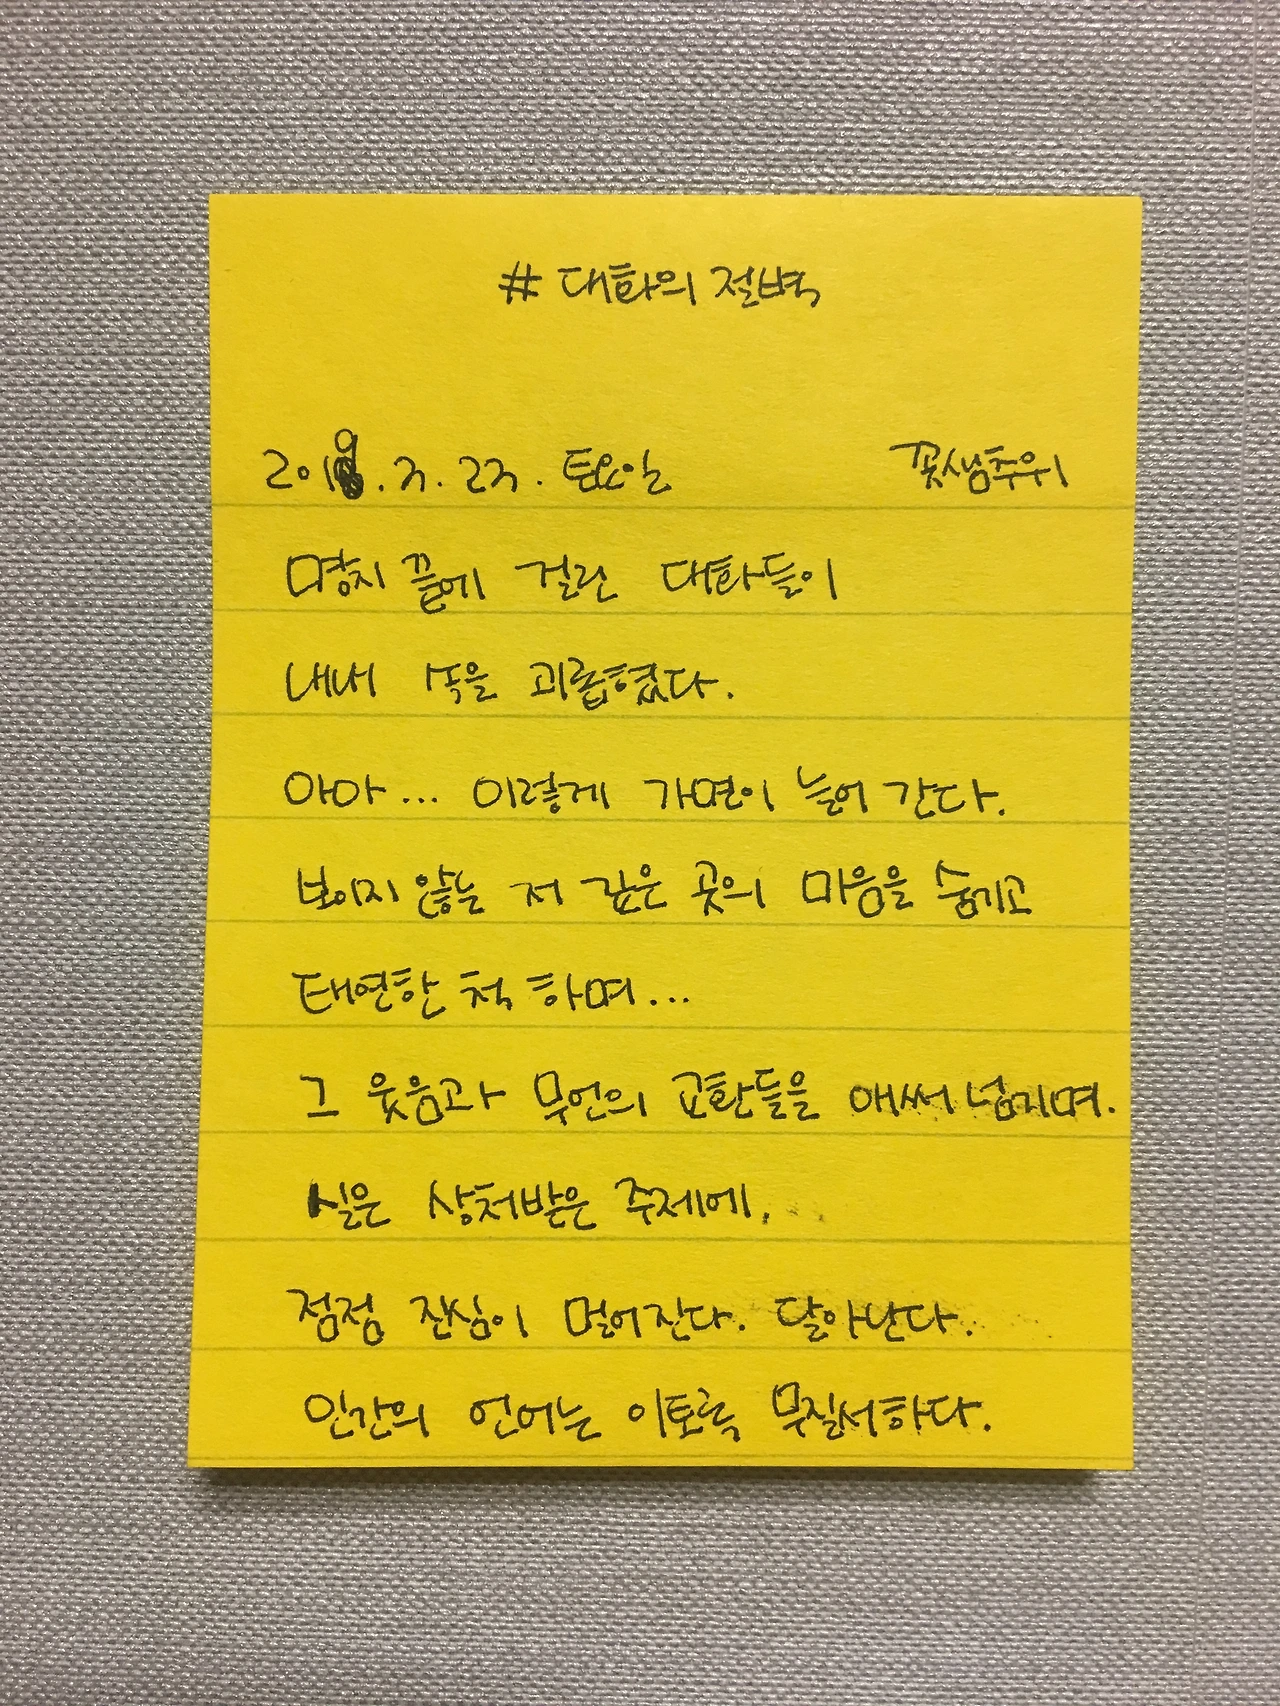 # 대화의 절벽
2019. 3. 23. 토요일 꽃샘추위
명치 끝에 걸린 대화들이
내내 속을 괴롭혔다.
아아... 이렇게 가면이 늘어 간다.
보이지 않는 저 깊은 곳의 마음을 숨기고
태연한 척 하며...
그 웃음과 무언의 교환들을 애써 넘기며.
실은 상처받은 주제에.
점점 진심이 멀어진다. 달아난다.
인간의 언어는 이토록 무질서하다.